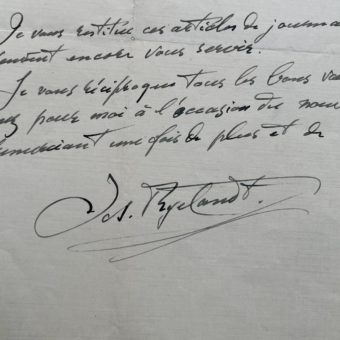 Je vous restitue ces articles de journa
encor vous servir.
Je vous réciproque tous les bons vœ
pour moi à l'occasion du nou
merciant une fois de plus et de
Jos. Ryelandt.